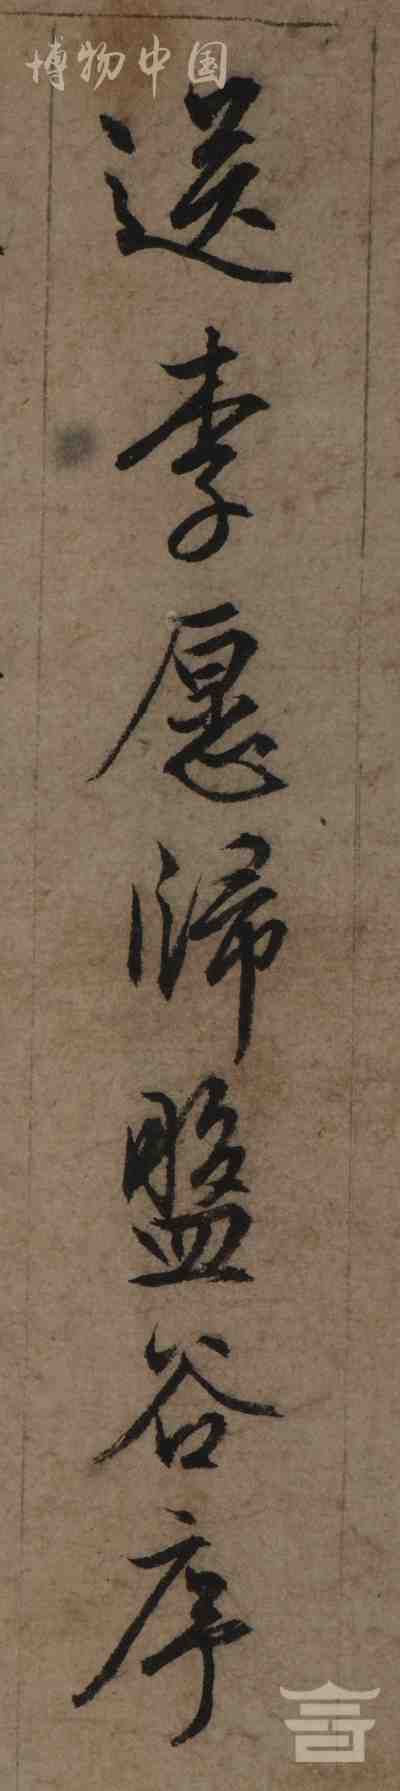 博物中国
送李愿歸盤谷序